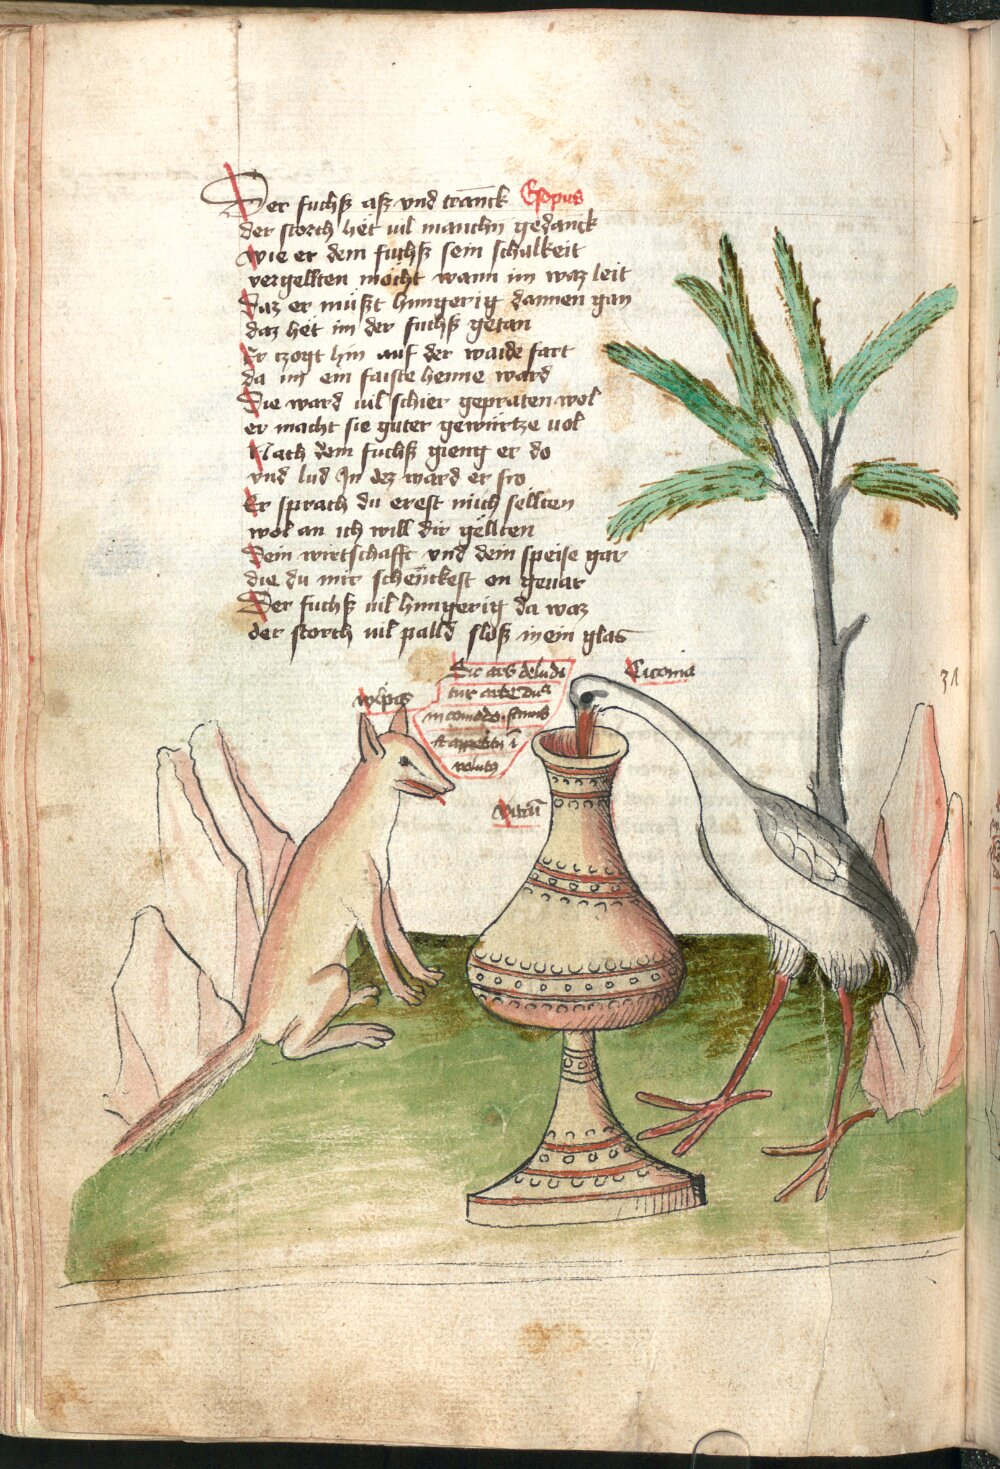 Der fuchß aß vnd tranck Esopus
der storch het vil manchn gedanck
wie er dem fuchß sein schalkeit
vergellten möcht wann im waz leit
Daz er müßt hungerig dannen gan
daz het im der fuchß getan
Er tzogt hin auf der waide fart
da im ein faiste henne ward
Die ward vil schier gepraten wol
er macht sie guter gewürtze vol
Nach dem fuchß gieng er do
vnd lud In dez ward er fro
Er sprach du erest mich sellten
wol an ich will dir gellten
Dein wirtschafft vnd dein speise gar
die du mir schencktest on geuar
Der fuchß vil hungerig da waz
der storch vil palld sloß in ein glas
Sic ars deludi
tur arte
volpis
Ciconia
vitrū
31